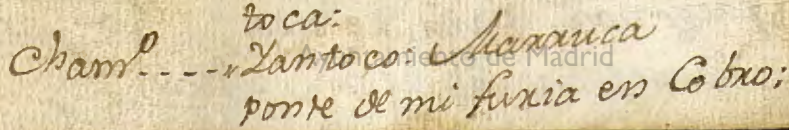 toca:
Cham.º - - - - Zantoco: Marruca
Ayuntamiento de Madrid
ponte de mi furia en Cobro: